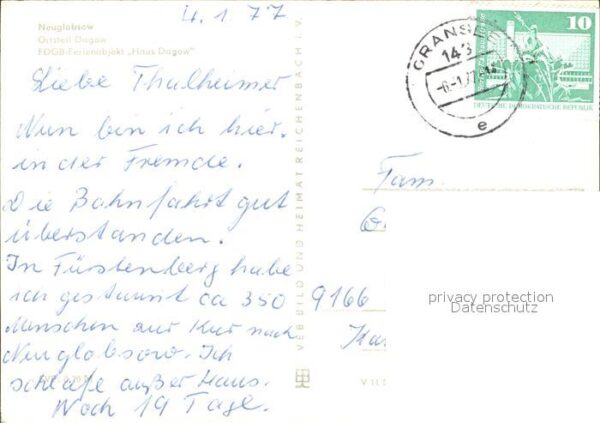 4.1.77
Neuglobsow
Ortsteil Dagow
FDGB-Ferienobjekt „Haus Dagow"
Liebe Thalheimer
Nun bin ich hier.
in der Fremde.
Die Bahnfahrt gut
überstanden.
In Fürstenberg habe
ich gestaunt ca 350
Menschen zur Kur nach
Neuglobsow. Ich
schlafe außer Haus.
Noch 19 Tage.
VEB BILD UND HEIMAT REICHENBACH I. V.
GRANSEE
143
-6.-1.77
e
10
DEUTSCHE DEMOKRATISCHE REPUBLIK
Fam.
9166
privacy protection
Datenschutz